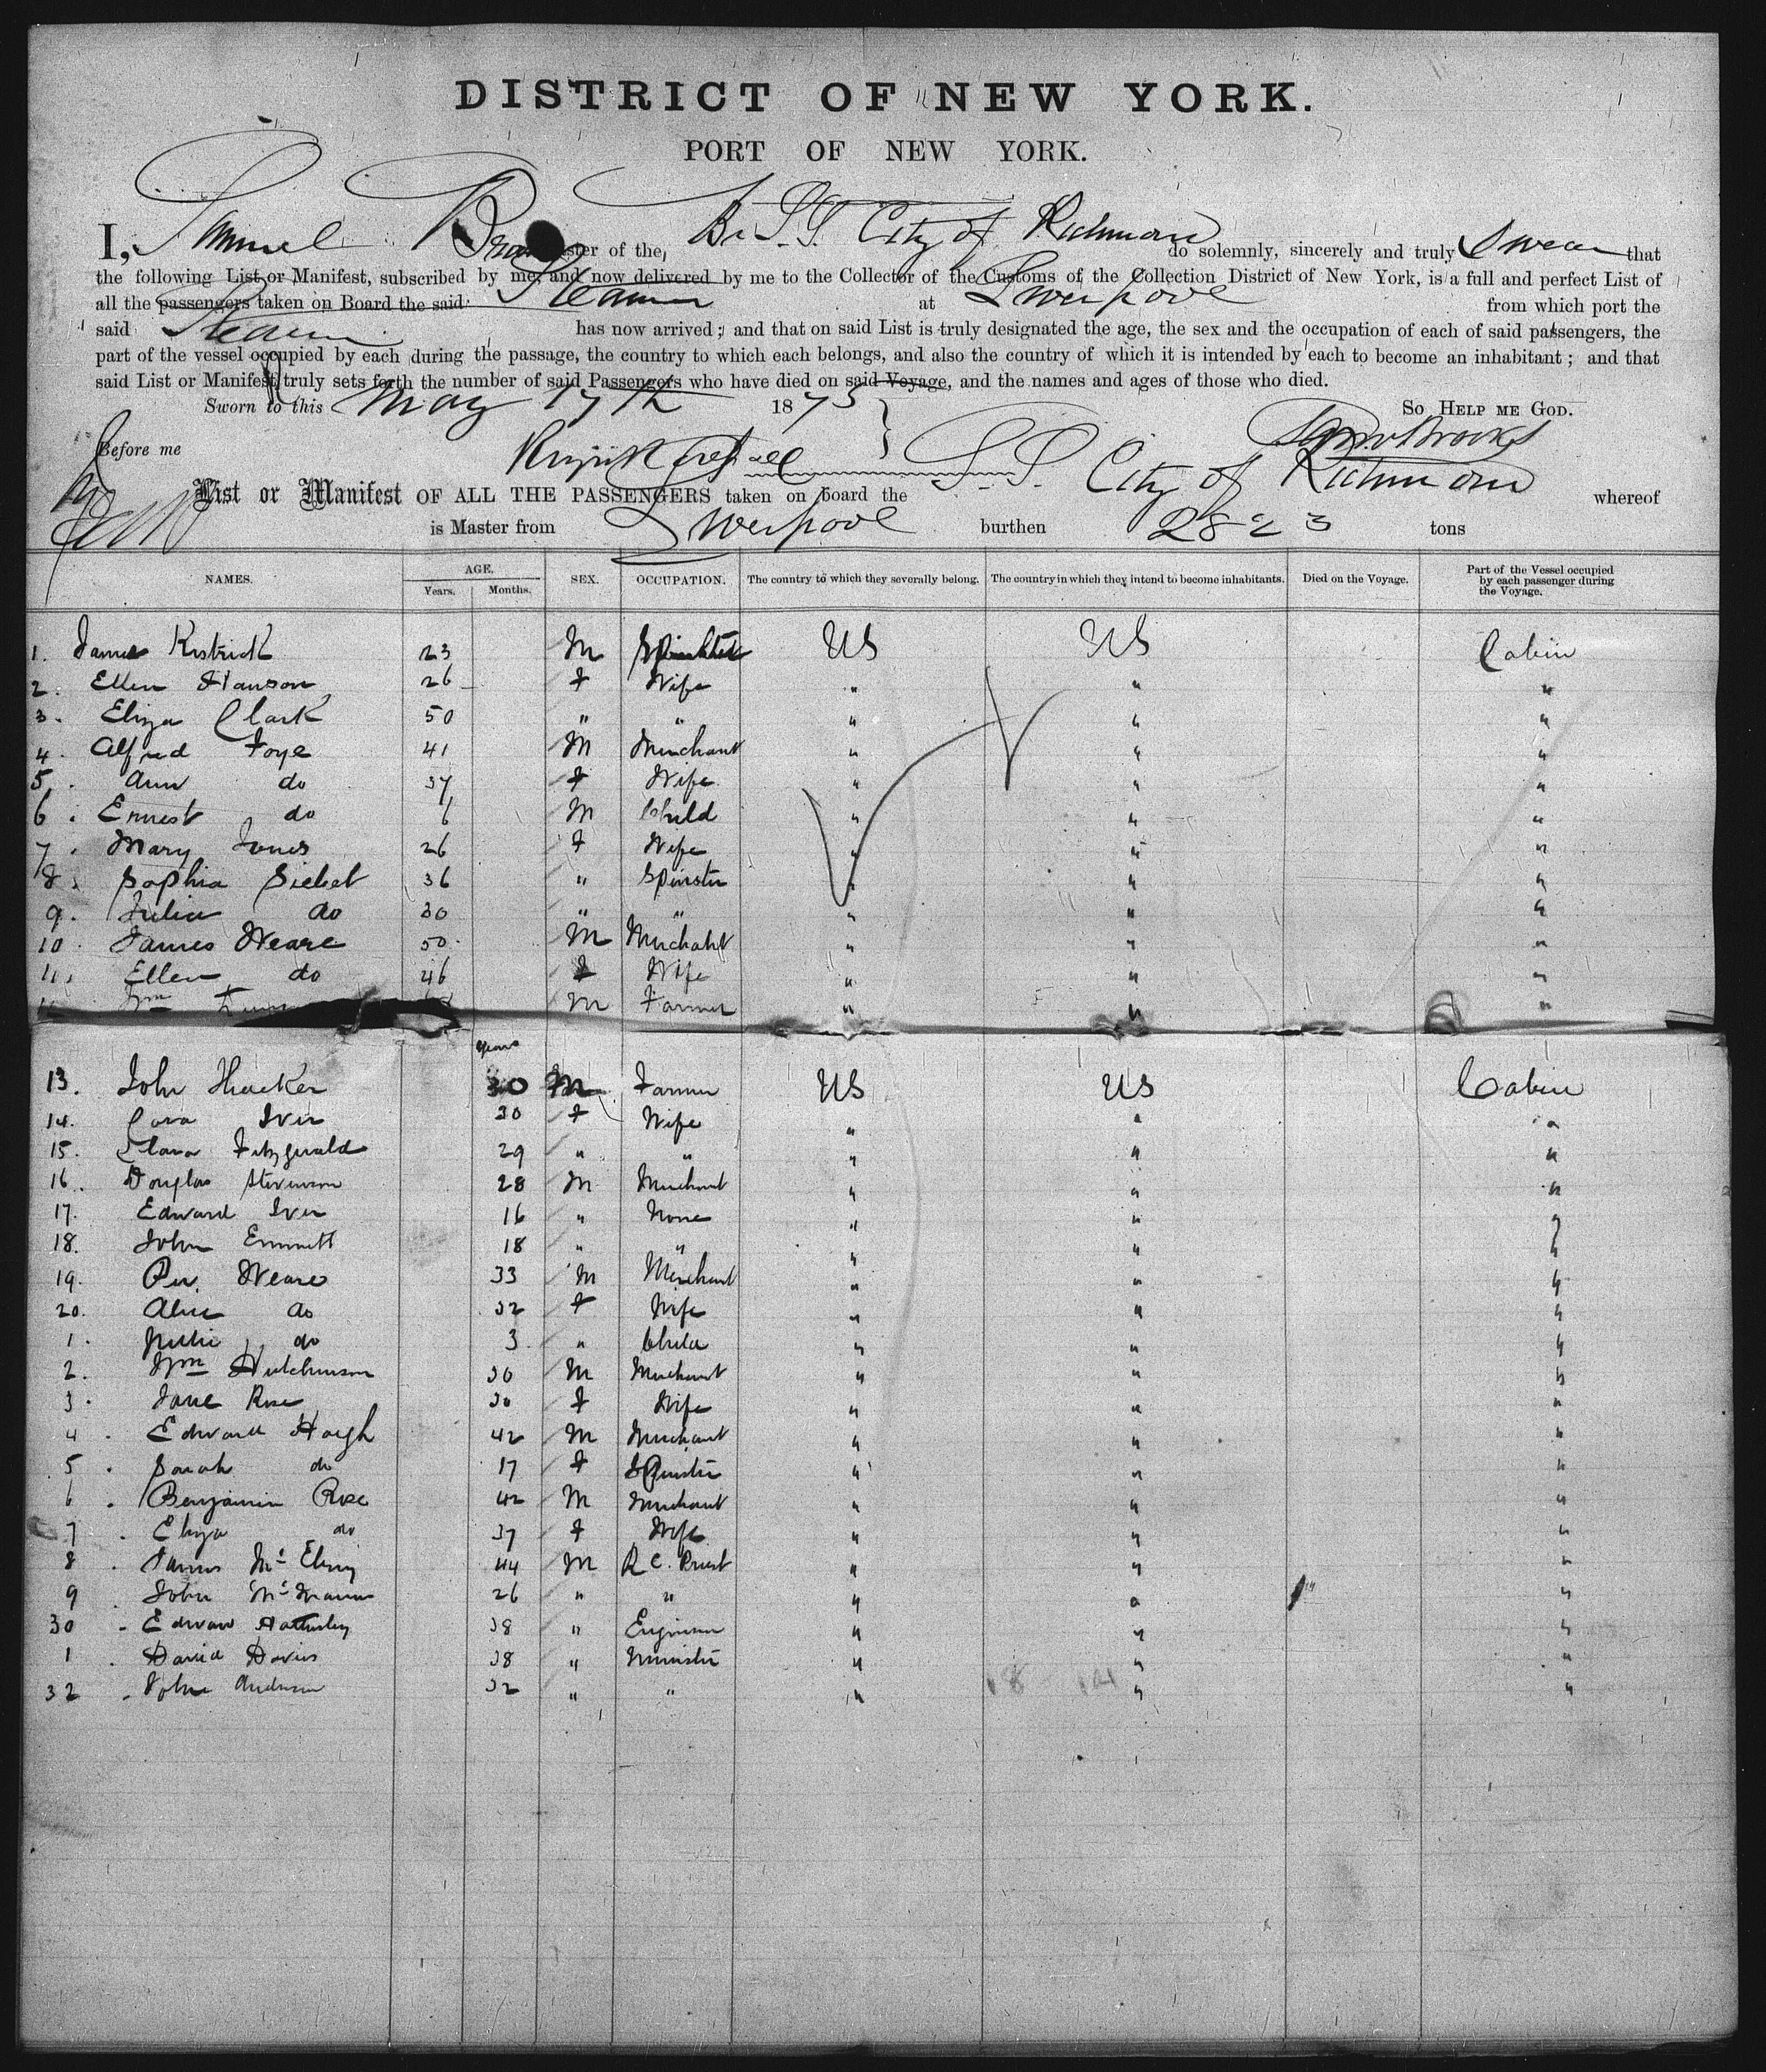 DISTRICT OF NEW YORK.
PORT OF NEW YORK.
I, Samuel ster of the, Br S.S. City of Richmond do solemnly, sincerely and truly Swear that
the following List or Manifest, subscribed by me, and now delivered by me to the Collector of the Customs of the Collection District of New York, is a full and perfect List of
all the passengers taken on Board the said Steamer at Liverpool from which port the
said Steamer has now arrived; and that on said List is truly designated the age, the sex and the occupation of each of said passengers, the
part of the vessel occupied by each during the passage, the country to which each belongs, and also the country of which it is intended by each to become an inhabitant; and that
said List or Manifest truly sets forth the number of said Passengers who have died on said Voyage, and the names and ages of those who died.
Sworn to this May 17th 1875 So HELP ME GOD.
Before me
List or Manifest OF ALL THE PASSENGERS taken on board the S.S. City of Richmond whereof
is Master from Liverpool burthen 2823 tons
NAMES. AGE. Years. Months. SEX. OCCUPATION. The country to which they severally belong. The country in which they intend to become inhabitants. Died on the Voyage. Part of the Vessel occupied by each passenger during the Voyage.
1. James 23 M US US Cabin
2. Ellen Hanson 26 F Wife " " "
3. Eliza Clark 50 " " " " "
4. Alfred Foye 41 M Merchant " " "
5. Ann do 37 F Wife " " "
6. Ernest do 6 M Child " " "
7. Mary Jones 26 F Wife " " "
8. Sophia Sichel 36 " Spinster " " "
9. Julia do 30 " " " " "
10. James Weare 50 M Merchant " " "
11. Ellen do 46 F Wife " " "
Wm M Farmer " " "
Years
13. John Thacker 30 M Farmer US US Cabin
14. Cora Iver 30 F Wife " " "
15. Clara Fitzgerald 29 " " " " "
16. Douglas Stevenson 28 M Merchant " " "
17. Edward Iver 16 " None " " "
18. John Emmett 18 " " " " "
19. Weare 33 M Merchant " " "
20. Alice do 32 F Wife " " "
1. Nellie do 3 " Child " " "
2. Wm Hutchinson 30 M Merchant " " "
3. Jane Rose 30 F Wife " " "
4. Edward Hough 42 M Merchant " " "
5. Sarah do 17 F Spinster " " "
6. Benjamin Rose 42 M Merchant " " "
7. Eliza do 37 F Wife " " "
8. James 44 M R C. Priest " " "
9. John 26 " " " " "
30. Edward 38 " Engineer " " "
1. David Davies 38 " Minister " " "
32. John Anderson 32 " " " " "
18 14